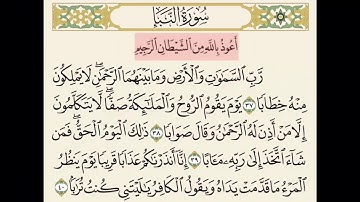 سُورَةُ النَّبَإِ
أَعُوذُ بِاللَّهِ مِنَ الشَّيْطَانِ الرَّجِيمِ
رَّبِّ ٱلسَّمَٰوَٰتِ وَٱلْأَرْضِ وَمَا بَيْنَهُمَا ٱلرَّحْمَٰنِۖ لَا يَمْلِكُونَ
مِنْهُ خِطَابًا ٣٧ يَوْمَ يَقُومُ ٱلرُّوحُ وَٱلْمَلَٰٓئِكَةُ صَفًّاۖ لَّا يَتَكَلَّمُونَ
إِلَّا مَنْ أَذِنَ لَهُ ٱلرَّحْمَٰنُ وَقَالَ صَوَابًا ٣٨ ذَٰلِكَ ٱلْيَوْمُ ٱلْحَقُّۖ فَمَن
شَآءَ ٱتَّخَذَ إِلَىٰ رَبِّهِۦ مَـَٔابًا ٣٩ إِنَّآ أَنذَرْنَٰكُمْ عَذَابًا قَرِيبًا يَوْمَ يَنظُرُ
ٱلْمَرْءُ مَا قَدَّمَتْ يَدَاهُ وَيَقُولُ ٱلْكَافِرُ يَٰلَيْتَنِى كُنتُ تُرَٰبًۢا ٤٠